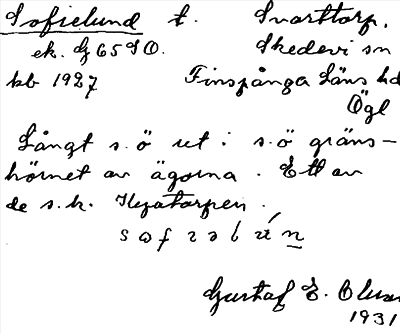 Sofielund t. Svarttorp.
ek. G 65 SO. Skedevi sn
kb 1927 Finspånga Läns hd
Ögl
Långt s.ö ut i s.ö gräns-
hörnet av ägorna. Ett av
de s.k. Nyatorpen.
Gustaf E. Olsson
1931